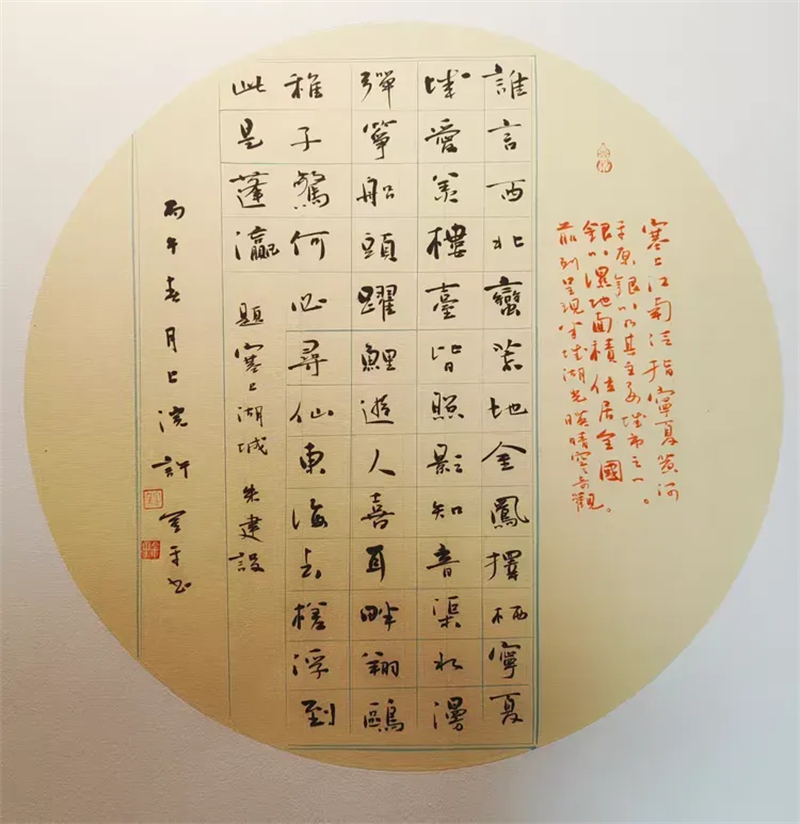 塞上江南泛指寧夏黄河
平原銀川乃其主要城市之一。
銀川濕地面積位居全國
前列呈現半城湖光映晴空奇觀。
誰言西北蠻荒地金鳳擇栖寧夏
城愛羨樓臺皆照影知音渠水漫
彈箏船頭躍鯉遊人喜耳畔翔鷗
稚子驚何必尋仙東海去槎浮到
此是蓬瀛 題塞上湖城 朱建設
丙午春月上浣許平书